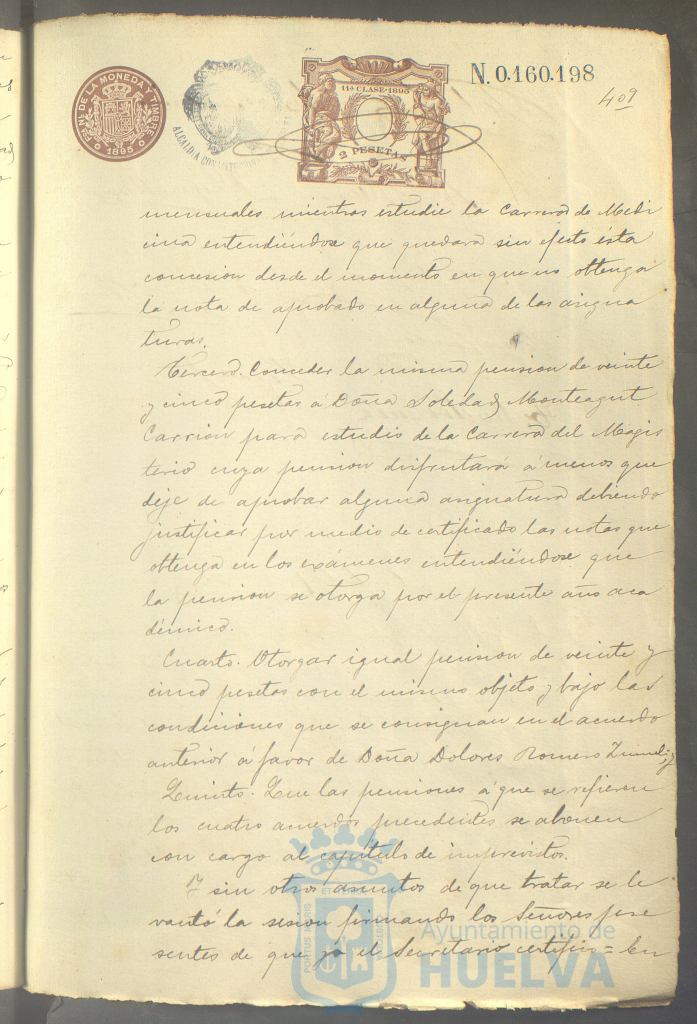 FÁBCA NL DE LA MONEDA Y TIMBRE
1895
ALCALDIA CONSTITUCIONAL
11ª CLASE-1895
2 PESETAS
N. 0.160.198
409
mensuales mientras estudie la Carrera de Medi
cina entendiéndose que quedara sin efecto ésta
concesion desde el momento en que no obtenga
la nota de aprobado en alguna de las asigna
turas.
Tercero. Conceder la misma pension de veinte
y cinco pesetas á Doña Soledad Monteagut
Carrion para estudio de la Carrera del Magis
terio cuya pension disfrutará á menos que
deje de aprobar alguna asignatura debiendo
justificar por medio de certificado las notas que
obtenga en los exámenes entendiéndose que
la pension se otorga por el presente año aca
démico.
Cuarto. Otorgar igual pension de veinte y
cinco pesetas con el mismo objeto y bajo las
condiciones que se consignan en el acuerdo
anterior á favor de Doña Dolores Romero
Quinto. Que las pensiones á que se refieren
los cuatro acuerdos precedentes se abonen
con cargo al capítulo de imprevistos.
Y sin otros asuntos de que tratar se le
vantó la sesion firmando los Señores pre
sentes de que yó el Secretario certifico = En
PORTUS MARIS ET TERRAE CUSTODIA
Ayuntamiento de
HUELVA